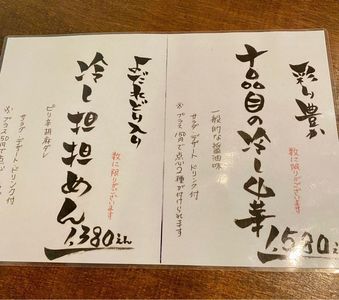 彩り豊か
十品目の冷し中華
数に限りがございます
一般的な醤油味
サラダ デザート ドリンク付
※プラス150円で点心2種が付けられます
1,580えん
よだれどり入り
冷し担担めん
数に限りがございます
ピリ辛胡麻ダレ
サラダ デザート ドリンク付
※プラス150円で点心
1,380えん